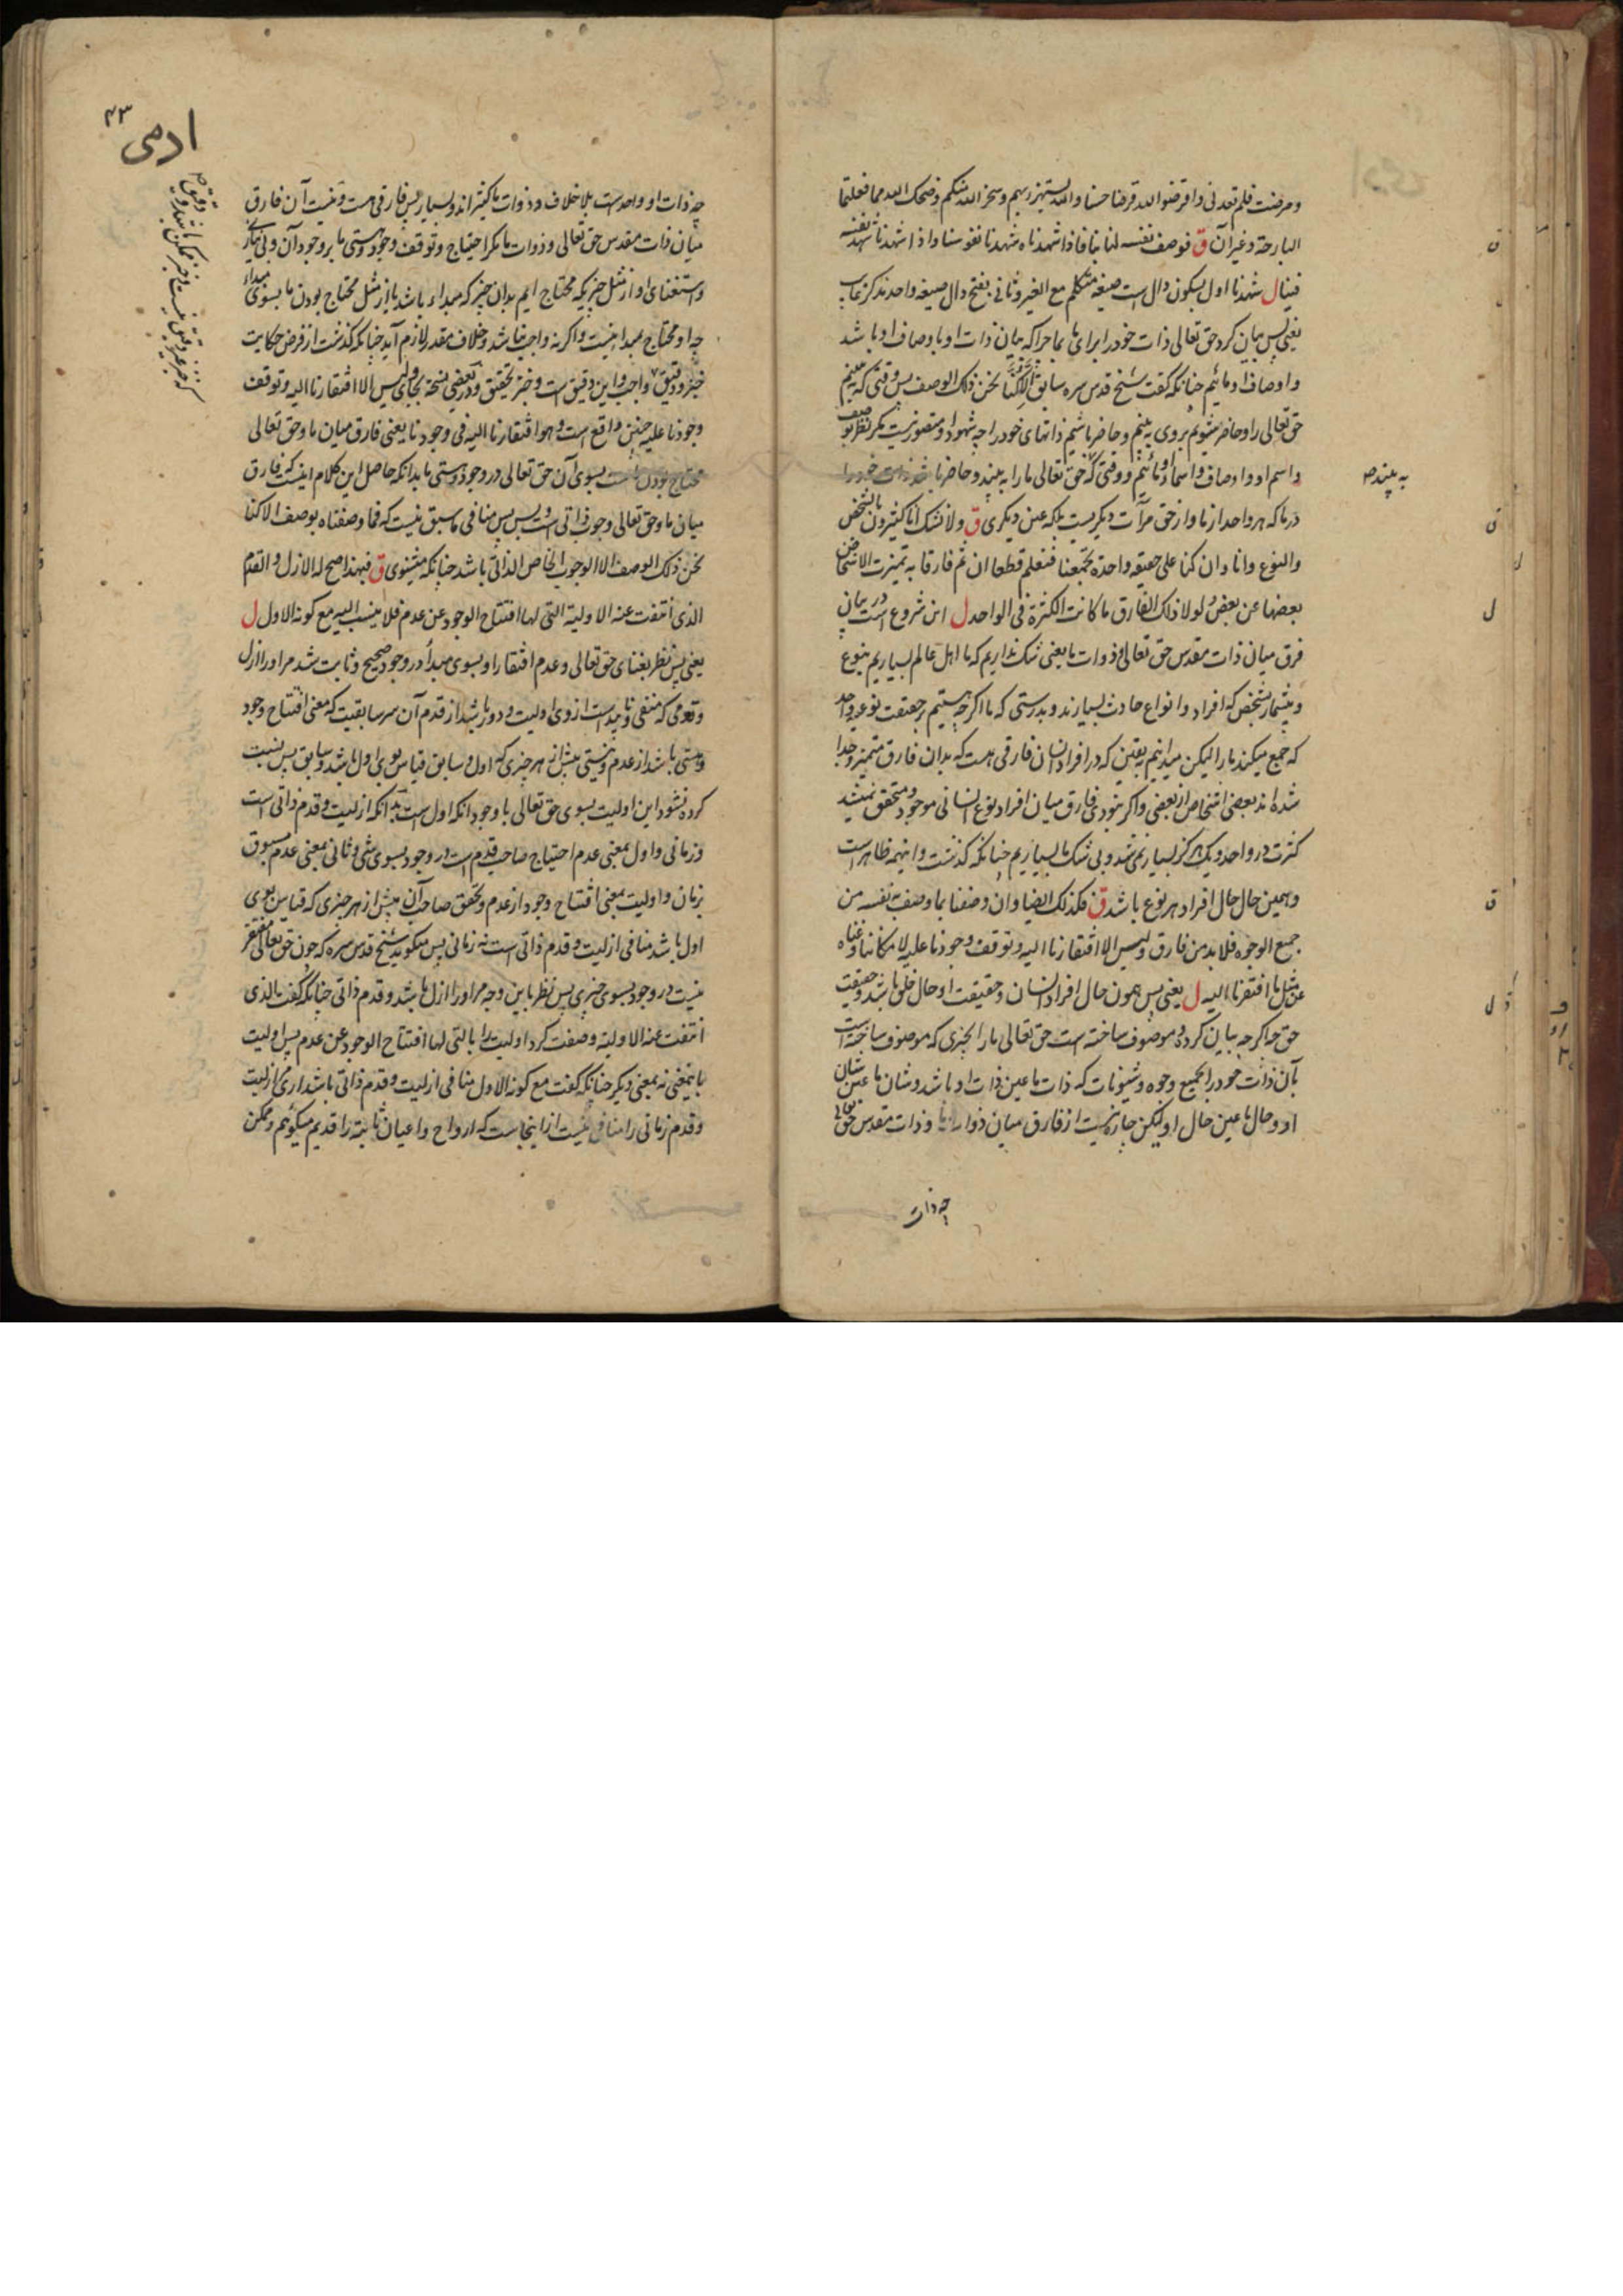 ومرضت فلم تعدنی واقرضوا الله قرضا حسنا والله یستهزئ بهم وسخر الله منکم وضحک الله مما فعلتما
البارحة وغیر آن ق فوصف نفسه لنا بنا فاذا شهدناه شهدنا نفوسنا واذا شهدنا شهد نفسه
ل شهدنا اول بسکون دال است صیغه متکلم مع الغیر وثانی بفتح دال صیغه واحد مذکر غایب
یعنی پس بیان کرد حق تعالی ذات خود را برای ما بما چرا که بیان ذات او باوصاف او باشد
واوصاف او مائیم چنانکه گفت شیخ قدس سره سابق الا کنا نحن ذلک الوصف پس وقتی که بینیم
حق تعالی را وحاضر شویم بروی به بینیم وحاضر باشیم ذاتهای خود را چه شهود او مقصور نیست مگر بظهور
واسم او واوصاف واسماء او مائیم ووقتی که حق تعالی ما را به بیند وحاضر ما
به بیند صح
در ما که هر واحد از ما واز حق مرآت دیگریست بلکه عین دیگری ق ولا نشک انا کثیرون بالشخص
والنوع وانا وان کنا علی حقیقه واحدة تجمعنا فنعلم قطعا ان ثم فارقا به تمیزت الاشخاص
بعضها عن بعض ولولا ذلک الفارق ما کانت الکثرة فی الواحد ل این شروع است در بیان
فرق میان ذات مقدس حق تعالی وذوات ما یعنی شک نداریم که ما اهل عالم بسیاریم بنوع
وبیشمار بشخص که افراد وانواع حادث بسیارند وبدرستی که ما اگرچه هستیم بر حقیقت نوعیه واحد
که جمع میکند ما را لیکن میدانیم بیقین که در افراد انسان فارقی هست که بدان فارق متمیز وجدا
شده اند بعضی اشخاص از بعضی واگر نبودی فارق میان افراد نوع انسانی موجود ومتحقق نمیشد
کثرت در واحد ویک هرگز بسیار نمی شد وبی شک ما بسیاریم چنانکه گذشت واینهمه ظاهر است
وهمین حال حال افراد هر نوع باشد ق فکذلک ایضا وان وصفنا بما وصف نفسه من
جمیع الوجوه فلا بد من فارق ولیس الا افتقارنا الیه وتوقف وجودنا علیه لامکاننا وغناه
عن مثل ما افتقرنا الیه ل یعنی پس همون حال افراد انسان وحقیقت او حال خلق باشد وحقیقت
حق چه اگرچه بیان کرده وموصوف ساخته است حق تعالی ما را بچیزی که موصوف ساخته است
بآن ذات خود را بجمیع وجوه وشیونات که ذات ما عین ذات او باشد وشان ما عین شان
او وحال ما عین حال او لیکن چاره نیست از فارق میان ذوات ما وذات مقدس حق تعالی
چه ذات
ادمی
۴۳
چه ذات او واحد است بلا خلاف وذوات ما کثیر اند وبسیار پس فارقی هست ونیست آن فارق
میان ذات مقدس حق تعالی وذوات ما مگر احتیاج وتوقف وجود وهستی ما بر وجود آن وبی نیازی
واستغنای او از مثل چیزیکه محتاج ایم بدان چیز که مبداء باشد یا از مثل محتاج بودن ما بسوی مبداء
چه او محتاج بمبدا نیست واگر نه واجب نباشد وخلاف مقدر لازم آید چنانکه گذشت از فرض حکایت
خبر ودقیق واجب واین دقیق است وخبر تحقیق ودر بعضی نسخه بجای ولیس الا افتقارنا الیه وتوقف
وجودنا علیه چنین واقع است وهو افتقارنا الیه فی وجودنا یعنی فارق میان ما وحق تعالی
محتاج بودن ماست بسوی آن حق تعالی در وجود وهستی بدانکه حاصل این کلام اینست که فارق
میان ما وحق تعالی وجوب ذاتی است وبس پس منافی ما سبق نیست که فما وصفناه بوصف الا کنا
نحن ذلک الوصف الا الوجوب الخاص الذاتی باشد چنانکه میشنوی ق فبهذا صح له الازل والقدم
الذی انتفت عنه الاولیة التی لها افتتاح الوجود عن عدم فلا ینسب الیه مع کونه الاول ل
یعنی پس نظر بغنای حق تعالی وعدم افتقار او بسوی مبداء در وجود صحیح وثابت شد مر او را ازل
وقدمی که منفی است از وی اولیت ودور باشد از قدم آن سر سابقیت که معنی افتتاح وجود
وهستی باشد از عدم ونیستی پیش از هر چیزی که اول وسابق قیاس بوی اول باشد وسابق پس نسبت
کرده نشود این اولیت بسوی حق تعالی با وجود آنکه اول است بدانکه ازلیت وقدم ذاتی است
وزمانی واول بمعنی عدم احتیاج صاحب قدم است در وجود بسوی شی وثانی بمعنی عدم مسبوق
بزمان واولیت بمعنی افتتاح وجود از عدم وتحقق صاحب آن پیش از هر چیزی که قیاس بوی
اول باشد منافی ازلیت وقدم ذاتی است نه زمانی پس میگوید شیخ قدس سره که چون حق تعالی مفتقر
نیست در وجود بسوی چیزی پس نظر باین وجه مر او را ازل باشد وقدم ذاتی چنانکه گفت الذی
انتفت عنه الاولیة وصفت کرد اولیت را بالتی لها افتتاح الوجود عن عدم پس اولیت
باینمعنی نه بمعنی دیگر چنانکه گفت مع کونه الاول منافی ازلیت وقدم ذاتی باشد اری ازلیت
وقدم زمانی را منافی نیست از اینجاست که ارواح واعیان ثابته را قدیم میگوئیم وممکن